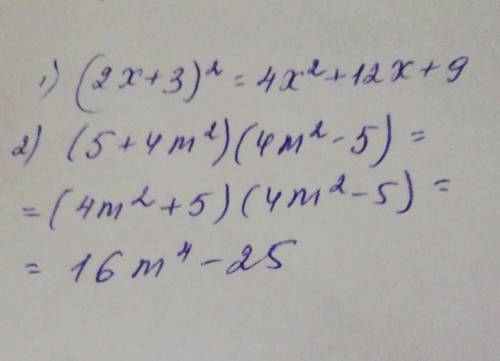 1) (2x+3)² = 4x²+12x+9
2) (5+4m²)(4m²-5) =
= (4m²+5)(4m²-5) =
= 16m⁴-25